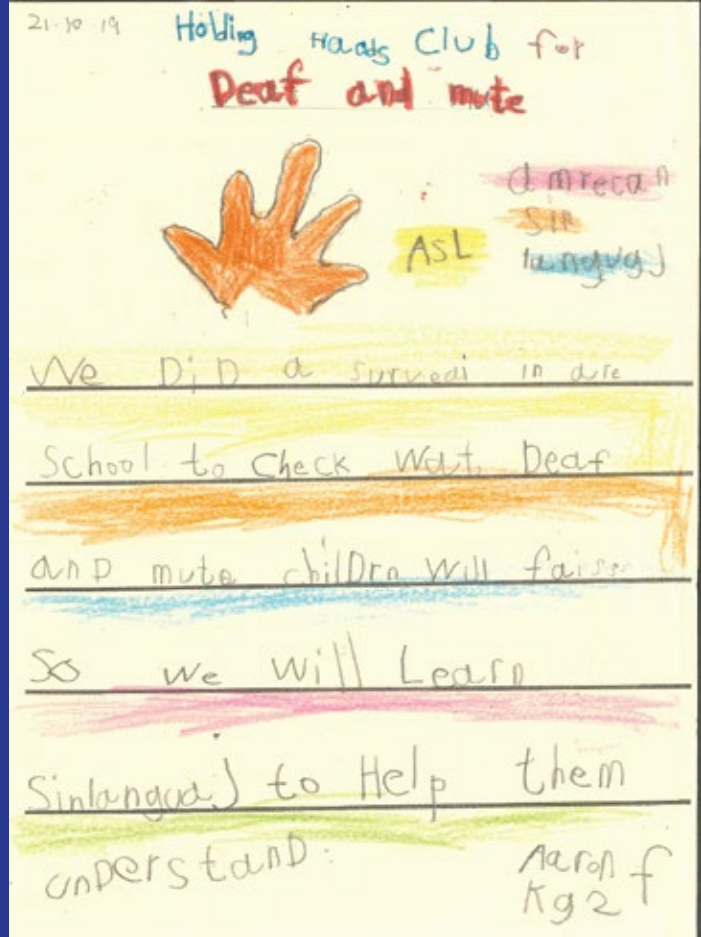 21.10 19
Holding Hands Club for
Deaf and mute
amrecan
ASL
sin
langugJ
We DiD a survedi in are
School to check wat Deaf
anD mute chilDrn will faiss
So we will Learn
SinlanguaJ to Help them
unDerstanD.
Aaron f
Kg2